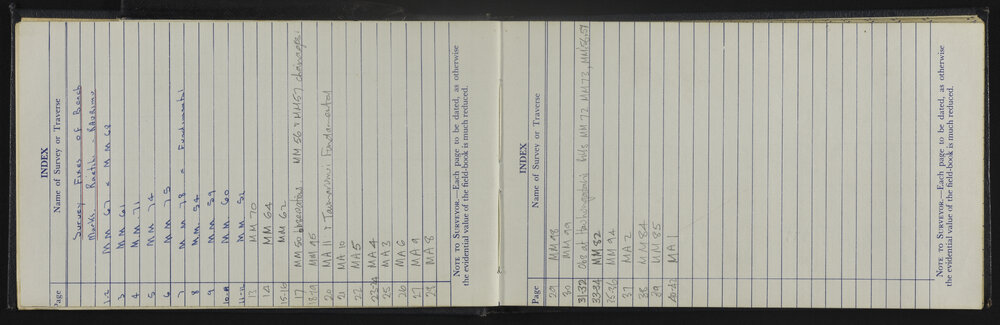 INDEX
Page Name of Survey or Traverse
Survey Fixes of Bench
Marks Raetihi - Raurimu
1-2 MM 67 & MM 68
3 MM 61
4 MM 71
5 MM 74
6 MM 75
7 MM 78 & Fundamental
8 MM 54
9 MM 59
10-11 MM 60
11-12 MM 52
13 MM 70
14 MM 64
15-16 MM 62
17 MM 50 observations. MM 56 & MM 57
18-19 MM 95
20 MA 11 & Fundamental
21 MA 10
22 MA 5
23-24 MA 4
25 MA 3
26 MA 6
27 MA 9
28 MA 8
NOTE TO SURVEYOR.—Each page to be dated, as otherwise
the evidential value of the field-book is much reduced.
INDEX
Page Name of Survey or Traverse
29 MM 98
30 MM 99
31-32 Obs at hills MM 72 MM 73, MM 56, 57
33-34 MM 82
35-36 MM 94
37 MA 2
38 MM 84
39 MM 85
40-41 MA 1
NOTE TO SURVEYOR.—Each page to be dated, as otherwise
the evidential value of the field-book is much reduced.